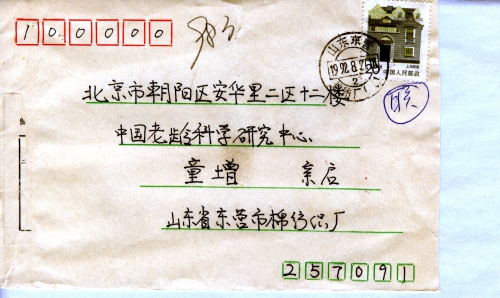 100000
山东东营
1992.8.25
上海民居
中国人民邮政
北京市朝阳区安华里二区十二楼
中国老龄科学研究中心
童增 亲启
山东省东营市棉纺织厂
257091